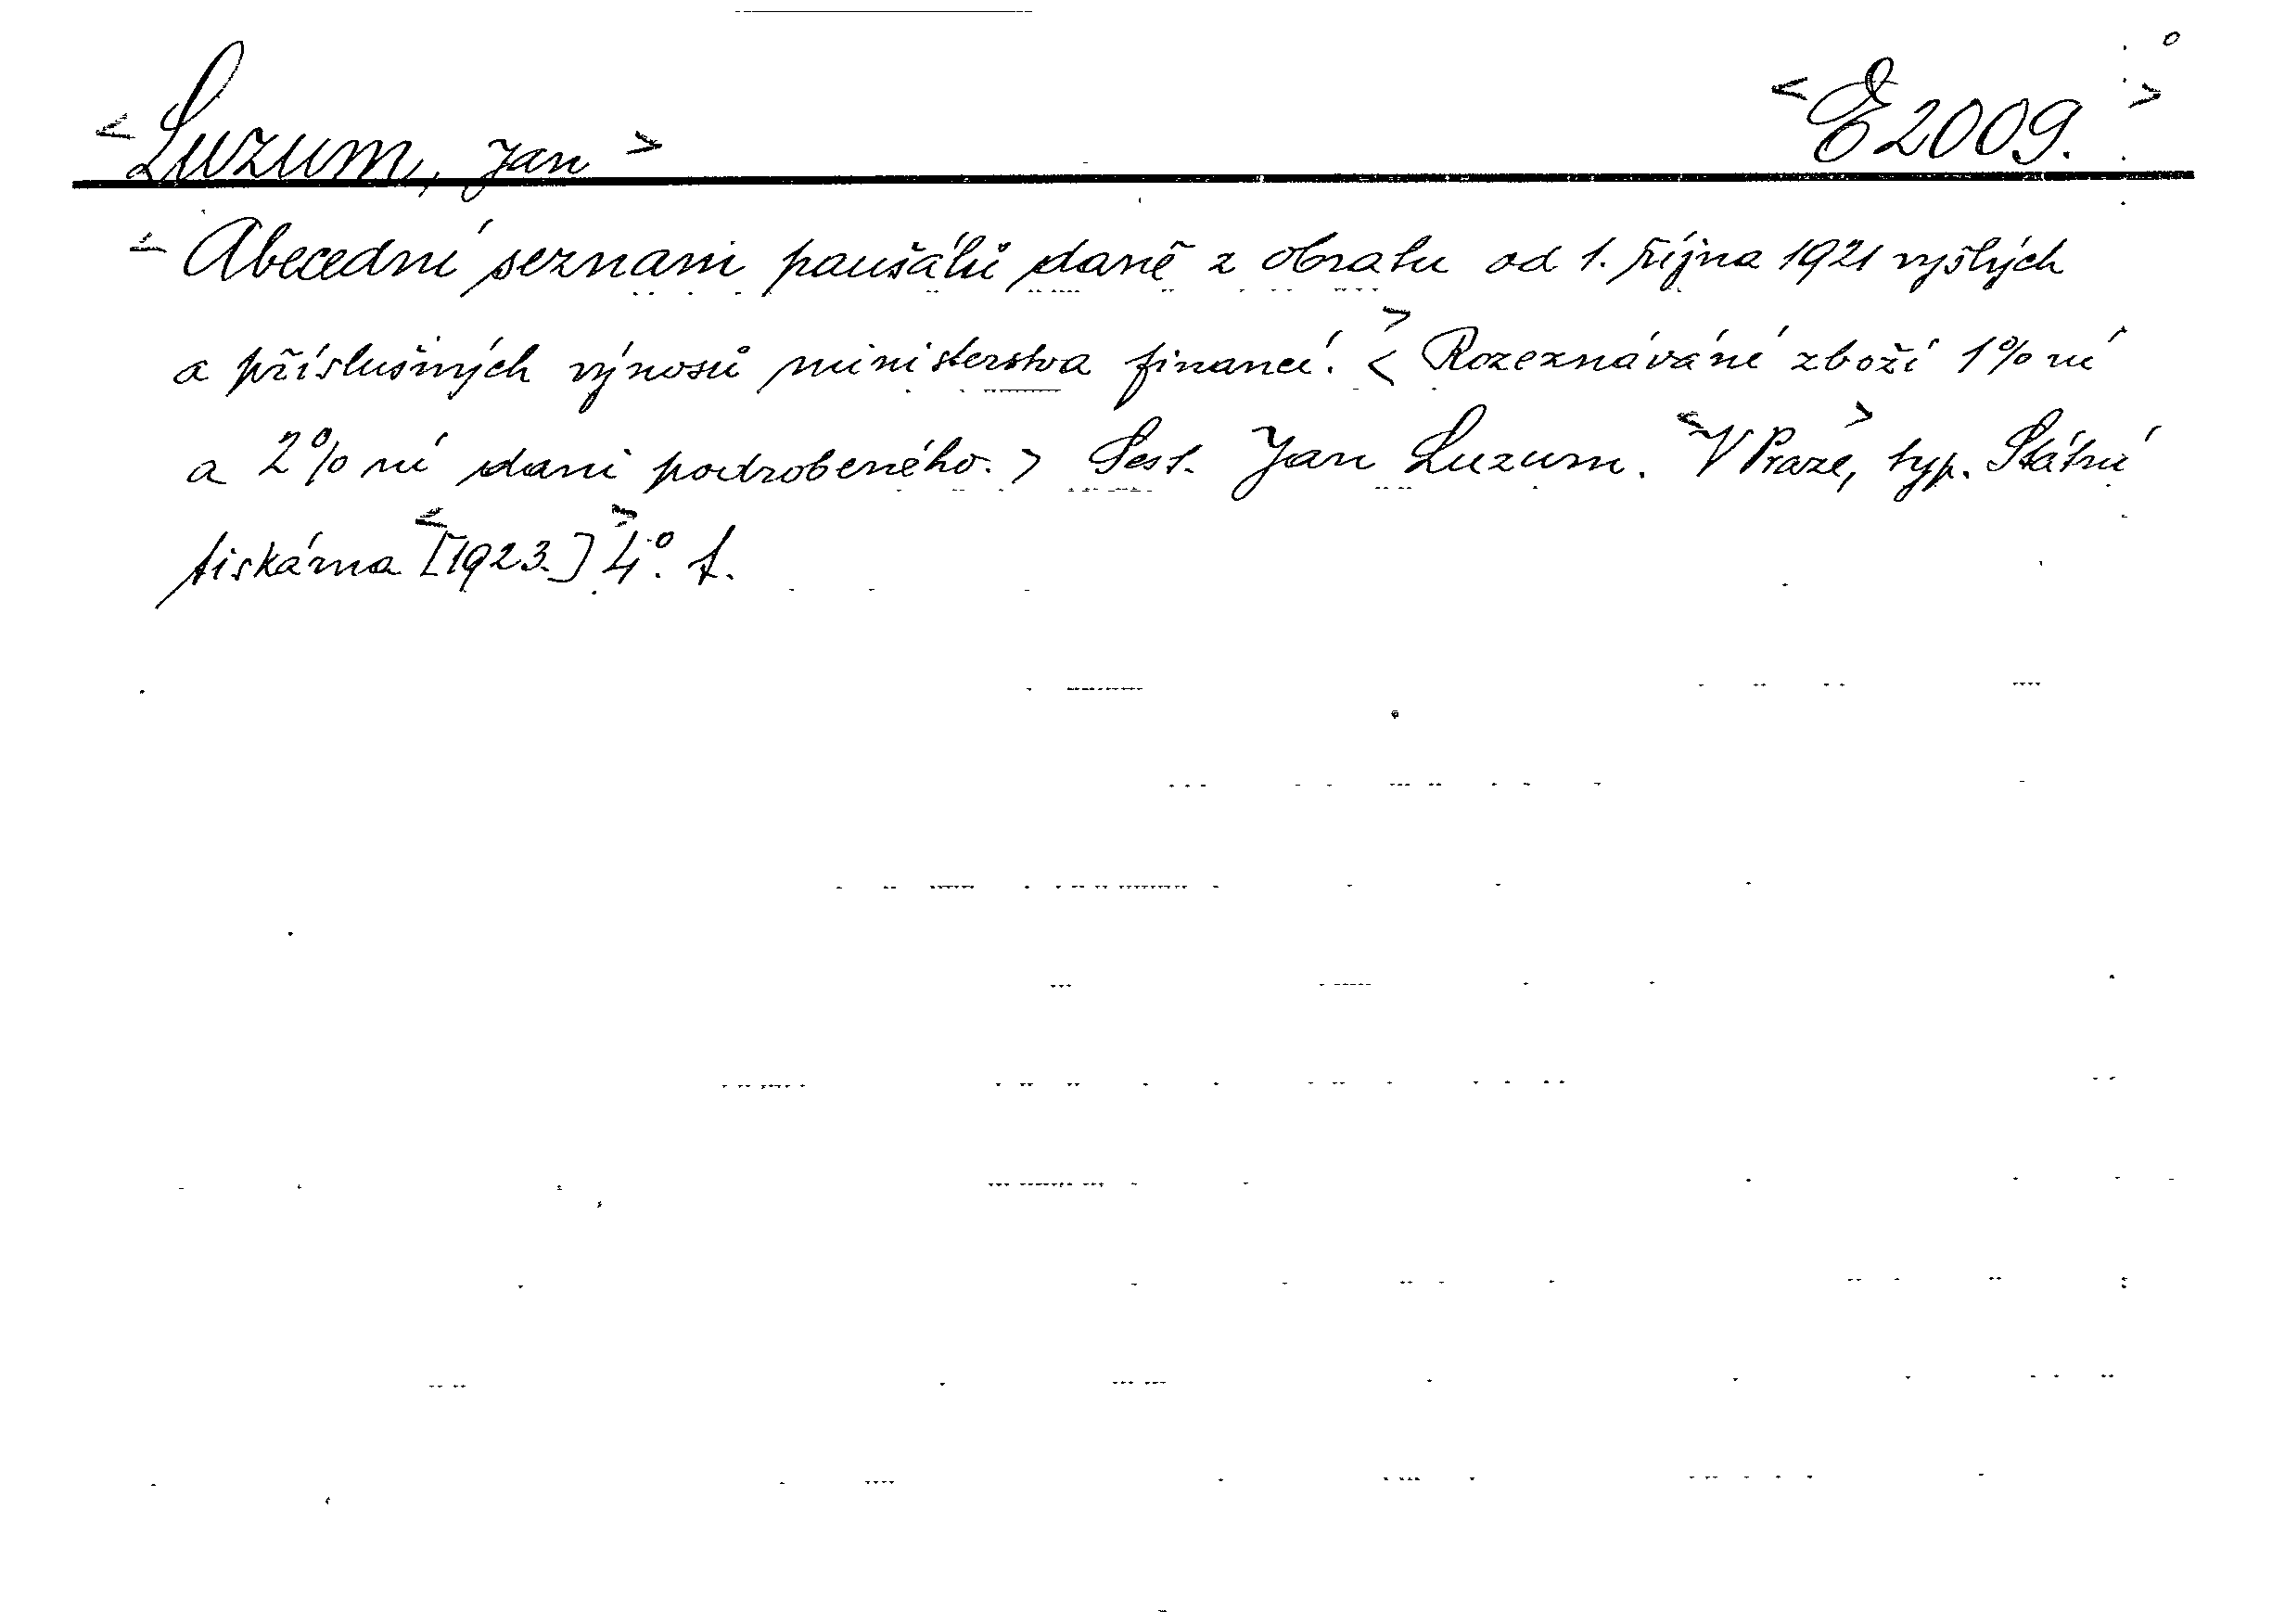 <Luzum, Jan> <E 2009.>
< Abecední seznam paušálů daně z obratu od 1. října 1921 vyšlých
a příslušných výnosů ministerstva financí.> < Rozeznávání zboží 1% ní
a 2% ní dani podrobeného. > Sest. Jan Luzum. <V Praze,> typ. Státní
tiskárna <[1923.]> 4°. f.